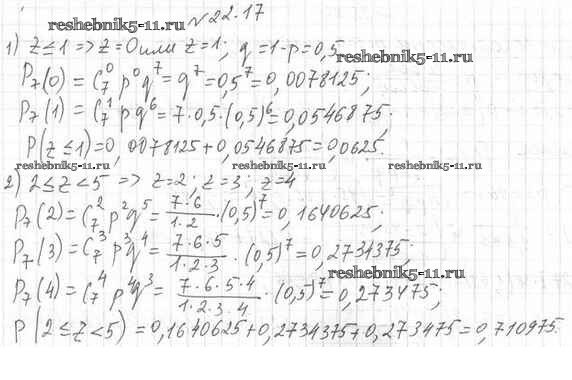 №22.17
reshebnik5-11.ru
1) z≤1 => z=0 или z=1; q=1-p=0,5
P₇(0) = C₇⁰ p⁰ q⁷ = q⁷ = 0,5⁷ = 0,0078125;
reshebnik5-11.ru
P₇(1) = C₇¹ p q⁶ = 7·0,5·(0,5)⁶ = 0,0546875;
P(z≤1) = 0,0078125+0,0546875 = 0,0625.
reshebnik5-11.ru reshebnik5-11.ru reshebnik5-11.ru
2) 2≤z<5 => z=2; z=3; z=4
P₇(2) = C₇² p² q⁵ = 7·6/1·2 · (0,5)⁷ = 0,1640625;
P₇(3) = C₇³ p³ q⁴ = 7·6·5/1·2·3 · (0,5)⁷ = 0,2734375;
reshebnik5-11.ru
P₇(4) = C₇⁴ p⁴ q³ = 7·6·5·4/1·2·3·4 · (0,5)⁷ = 0,273475;
P(2≤z<5) = 0,1640625+0,2734375+0,273475 = 0,710975.